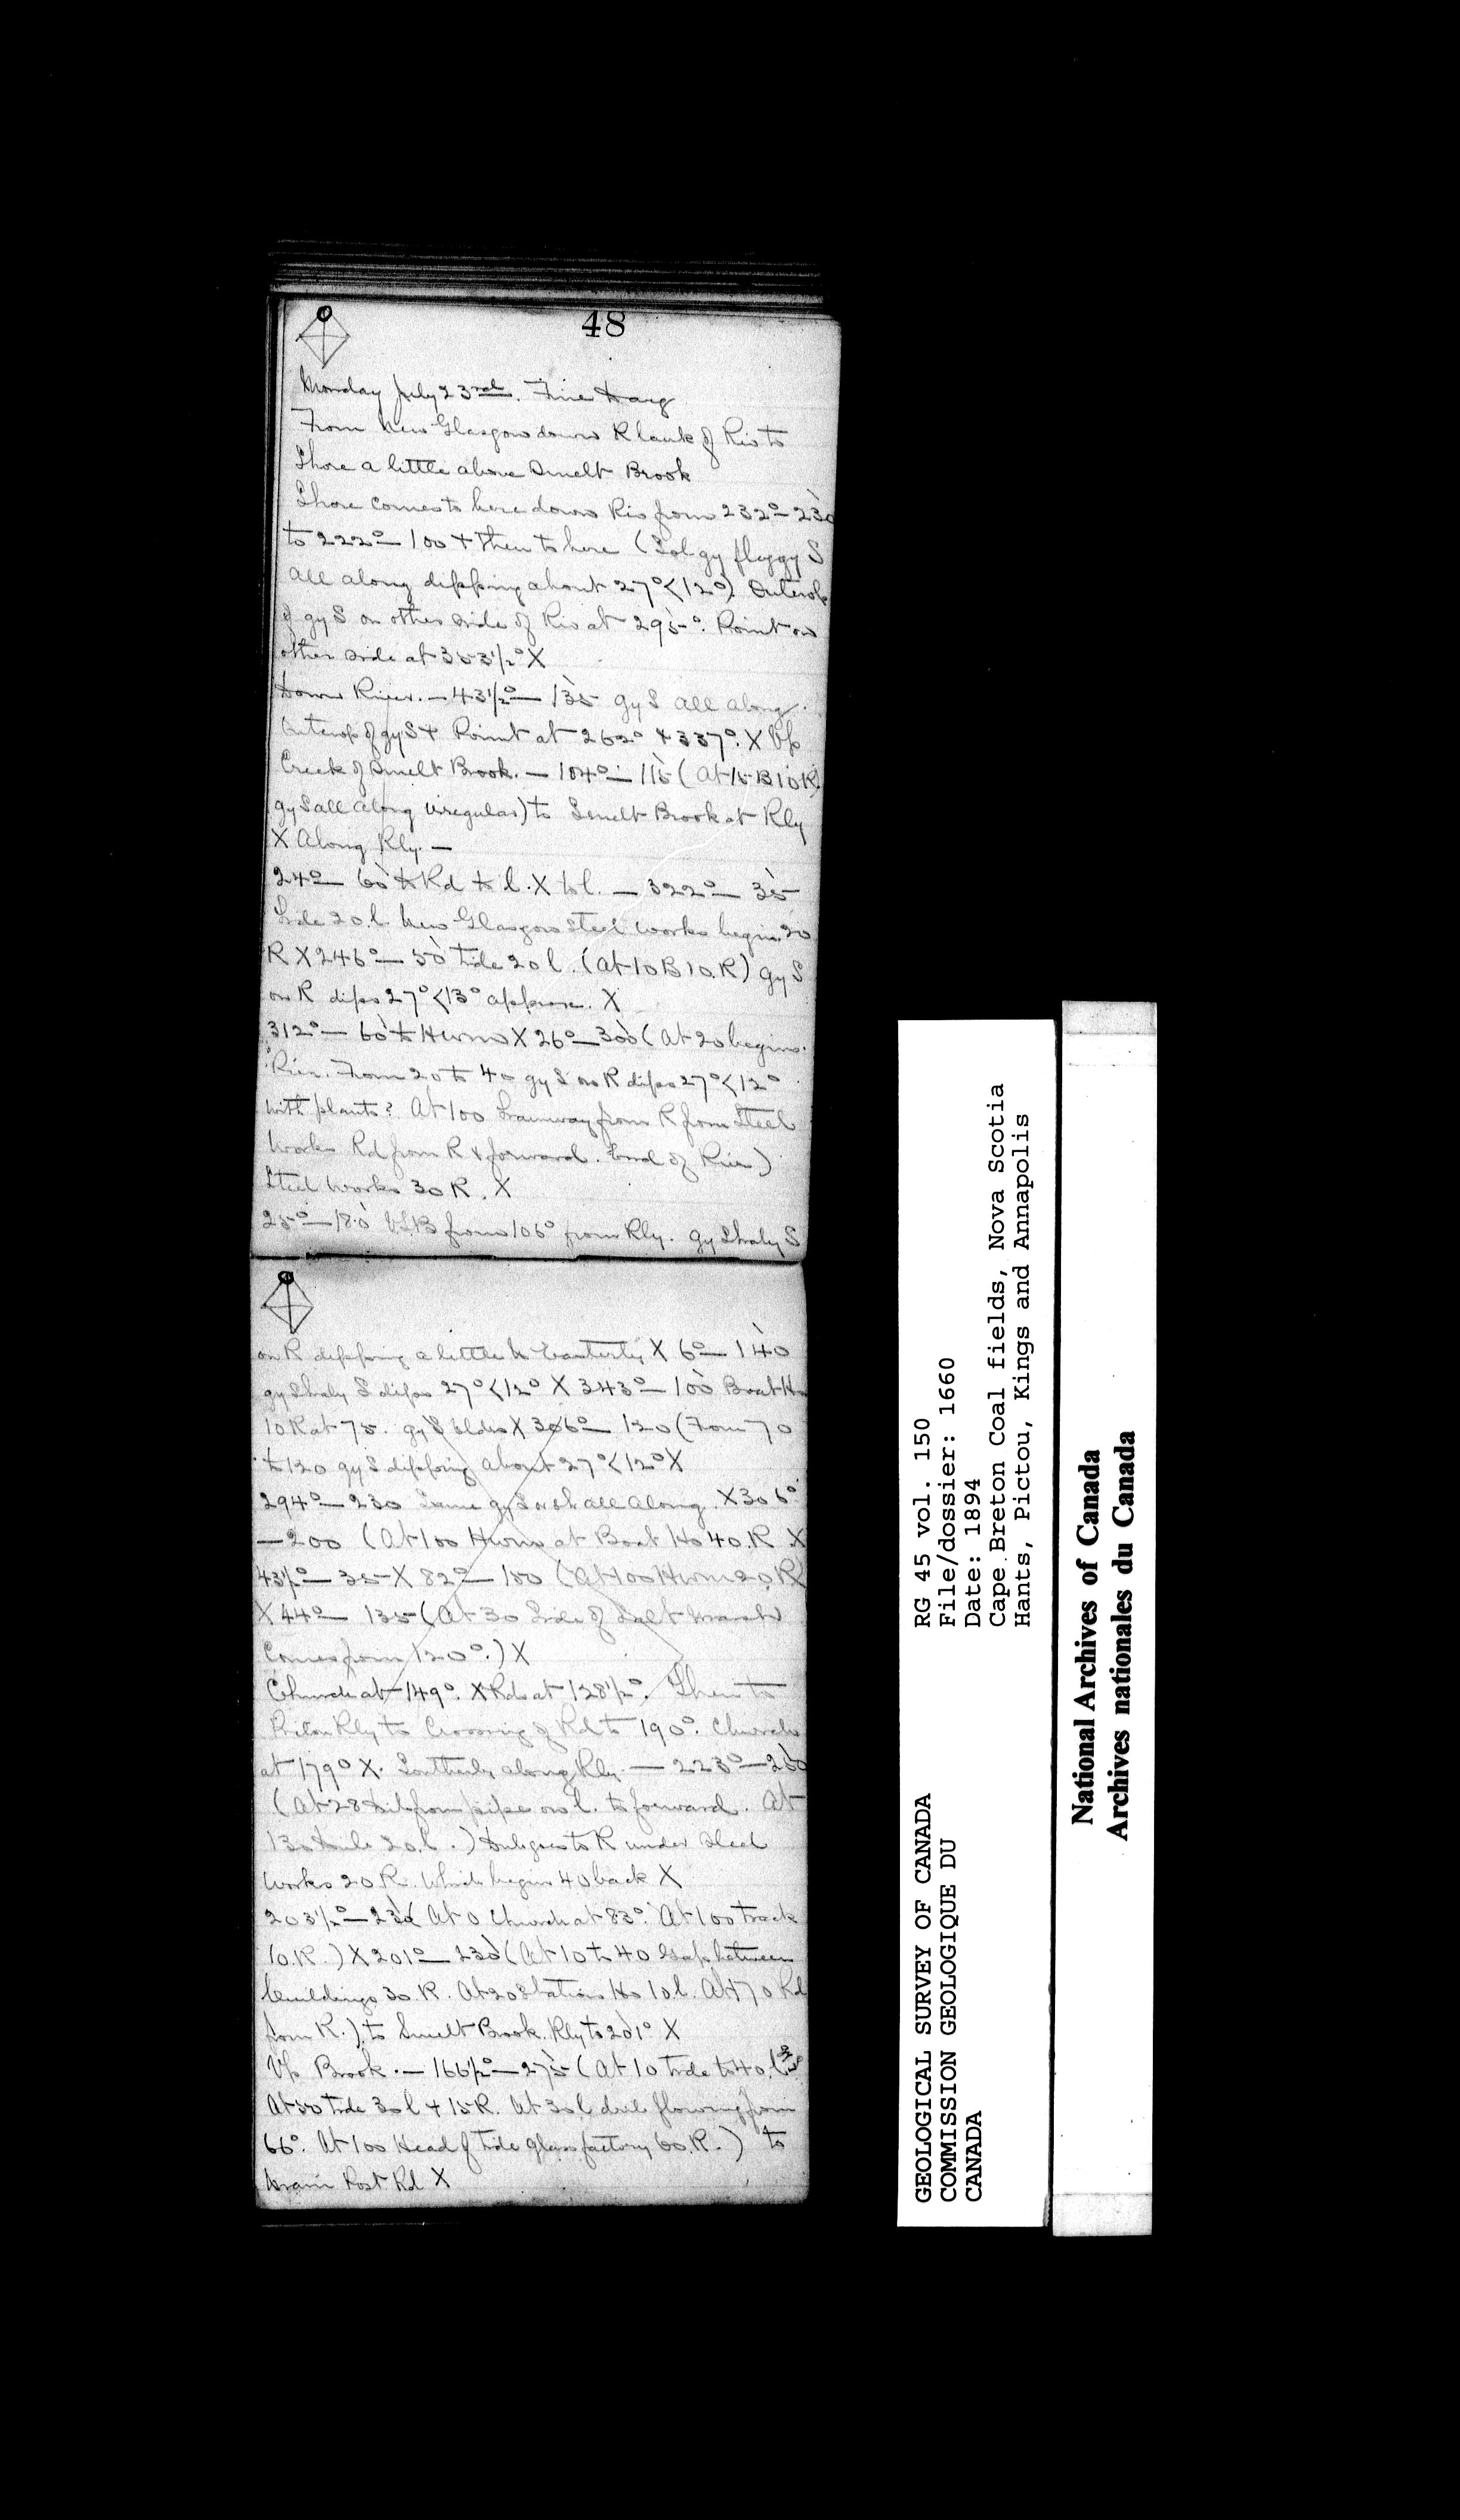 48
Monday July 23rd. Fine
From New Glasgow down R bank of Riv to
Shore a little above Smelt Brook
Shore comes to here down Riv from 232° — 230
to 222° — 100 + then to here (Sol gy flaggy S
all along dipping about 27° < 12°). Outcrop
of gy S on other side of Riv at 295°. Point on
other side at 353½° X
Down River. — 43½° — 135 gy S all along.
Outcrop of gy S + Point at 262° + 337°. X Up
Creek of Smelt Brook. — 104° — 115 (At 15 B 10 R.
gy S all along irregular) to Smelt Brook at Rly
X Along Rly. —
24° — 60 to Rd to l. X to l. — 322° — 35
Tide 20 l. New Glasgow Steel Works begin 20
R X 246° — 50 tide 20 l. (At 10 B 10. R) gy S
on R dips 27° < 13° approx. X
312° — 60 to Hwm X 26° — 300 (At 20 begins
River. From 20 to 40 gy S on R dips 27° < 12°
with plants? At 100 Tramway from R from Steel
Works Rd from R + forward. End of River)
Steel Works 30 R. X
25° — 180 VSB from 106° from Rly. gy Shaly S
on R dipping a little N Easterly X 6° — 140
gy Shaly S dips 27° < 12° X 343° — 100 Boat Ho
10 R at 75. gy S bldrs X 306° — 120 (From 70
to 120 gy S dipping about 27° < 12° X
294° — 230 Same gy S or sh all along. X 306°
— 200 (At 100 Hwm at Boat Ho 40. R X
43½° — 35 X 82° — 100 (At 100 Hwm 20 R)
X 44° — 135 (At 30 Side of Salt Marsh
Comes from 120°.) X
Church at 149°. X Rds at 128½°. Then to
Pictou Rly to Crossing of Rd to 190°. Church
at 179° X. Southerly along Rly. — 223° — 250
(At 28 from pipe on l. to forward. At
130 20. l.) goes to R under Steel
Works 20 R. Which begin 40 back X
203½° — 230 (At 0 Church at 83°. At 100 track
10. R.) X 201° — 230 (At 10 to 40 Gap between
buildings 30. R. At 20 Station Ho 10 l. At 170 Rd
from R.) to Smelt Brook. Rly to 201° X
Up Brook. — 166½° — 275 (At 10 tide to 40. l
At 50 tide 30 l + 15 R. At 30 l flowing from
66°. At 100 Head of tide glass factory 60. R.) to
Main Post Rd X
GEOLOGICAL SURVEY OF CANADA
COMMISSION GEOLOGIQUE DU
CANADA
RG 45 vol. 150
File/dossier: 1660
Date: 1894
Cape Breton Coal fields, Nova Scotia
Hants, Pictou, Kings and Annapolis
National Archives of Canada
Archives nationales du Canada